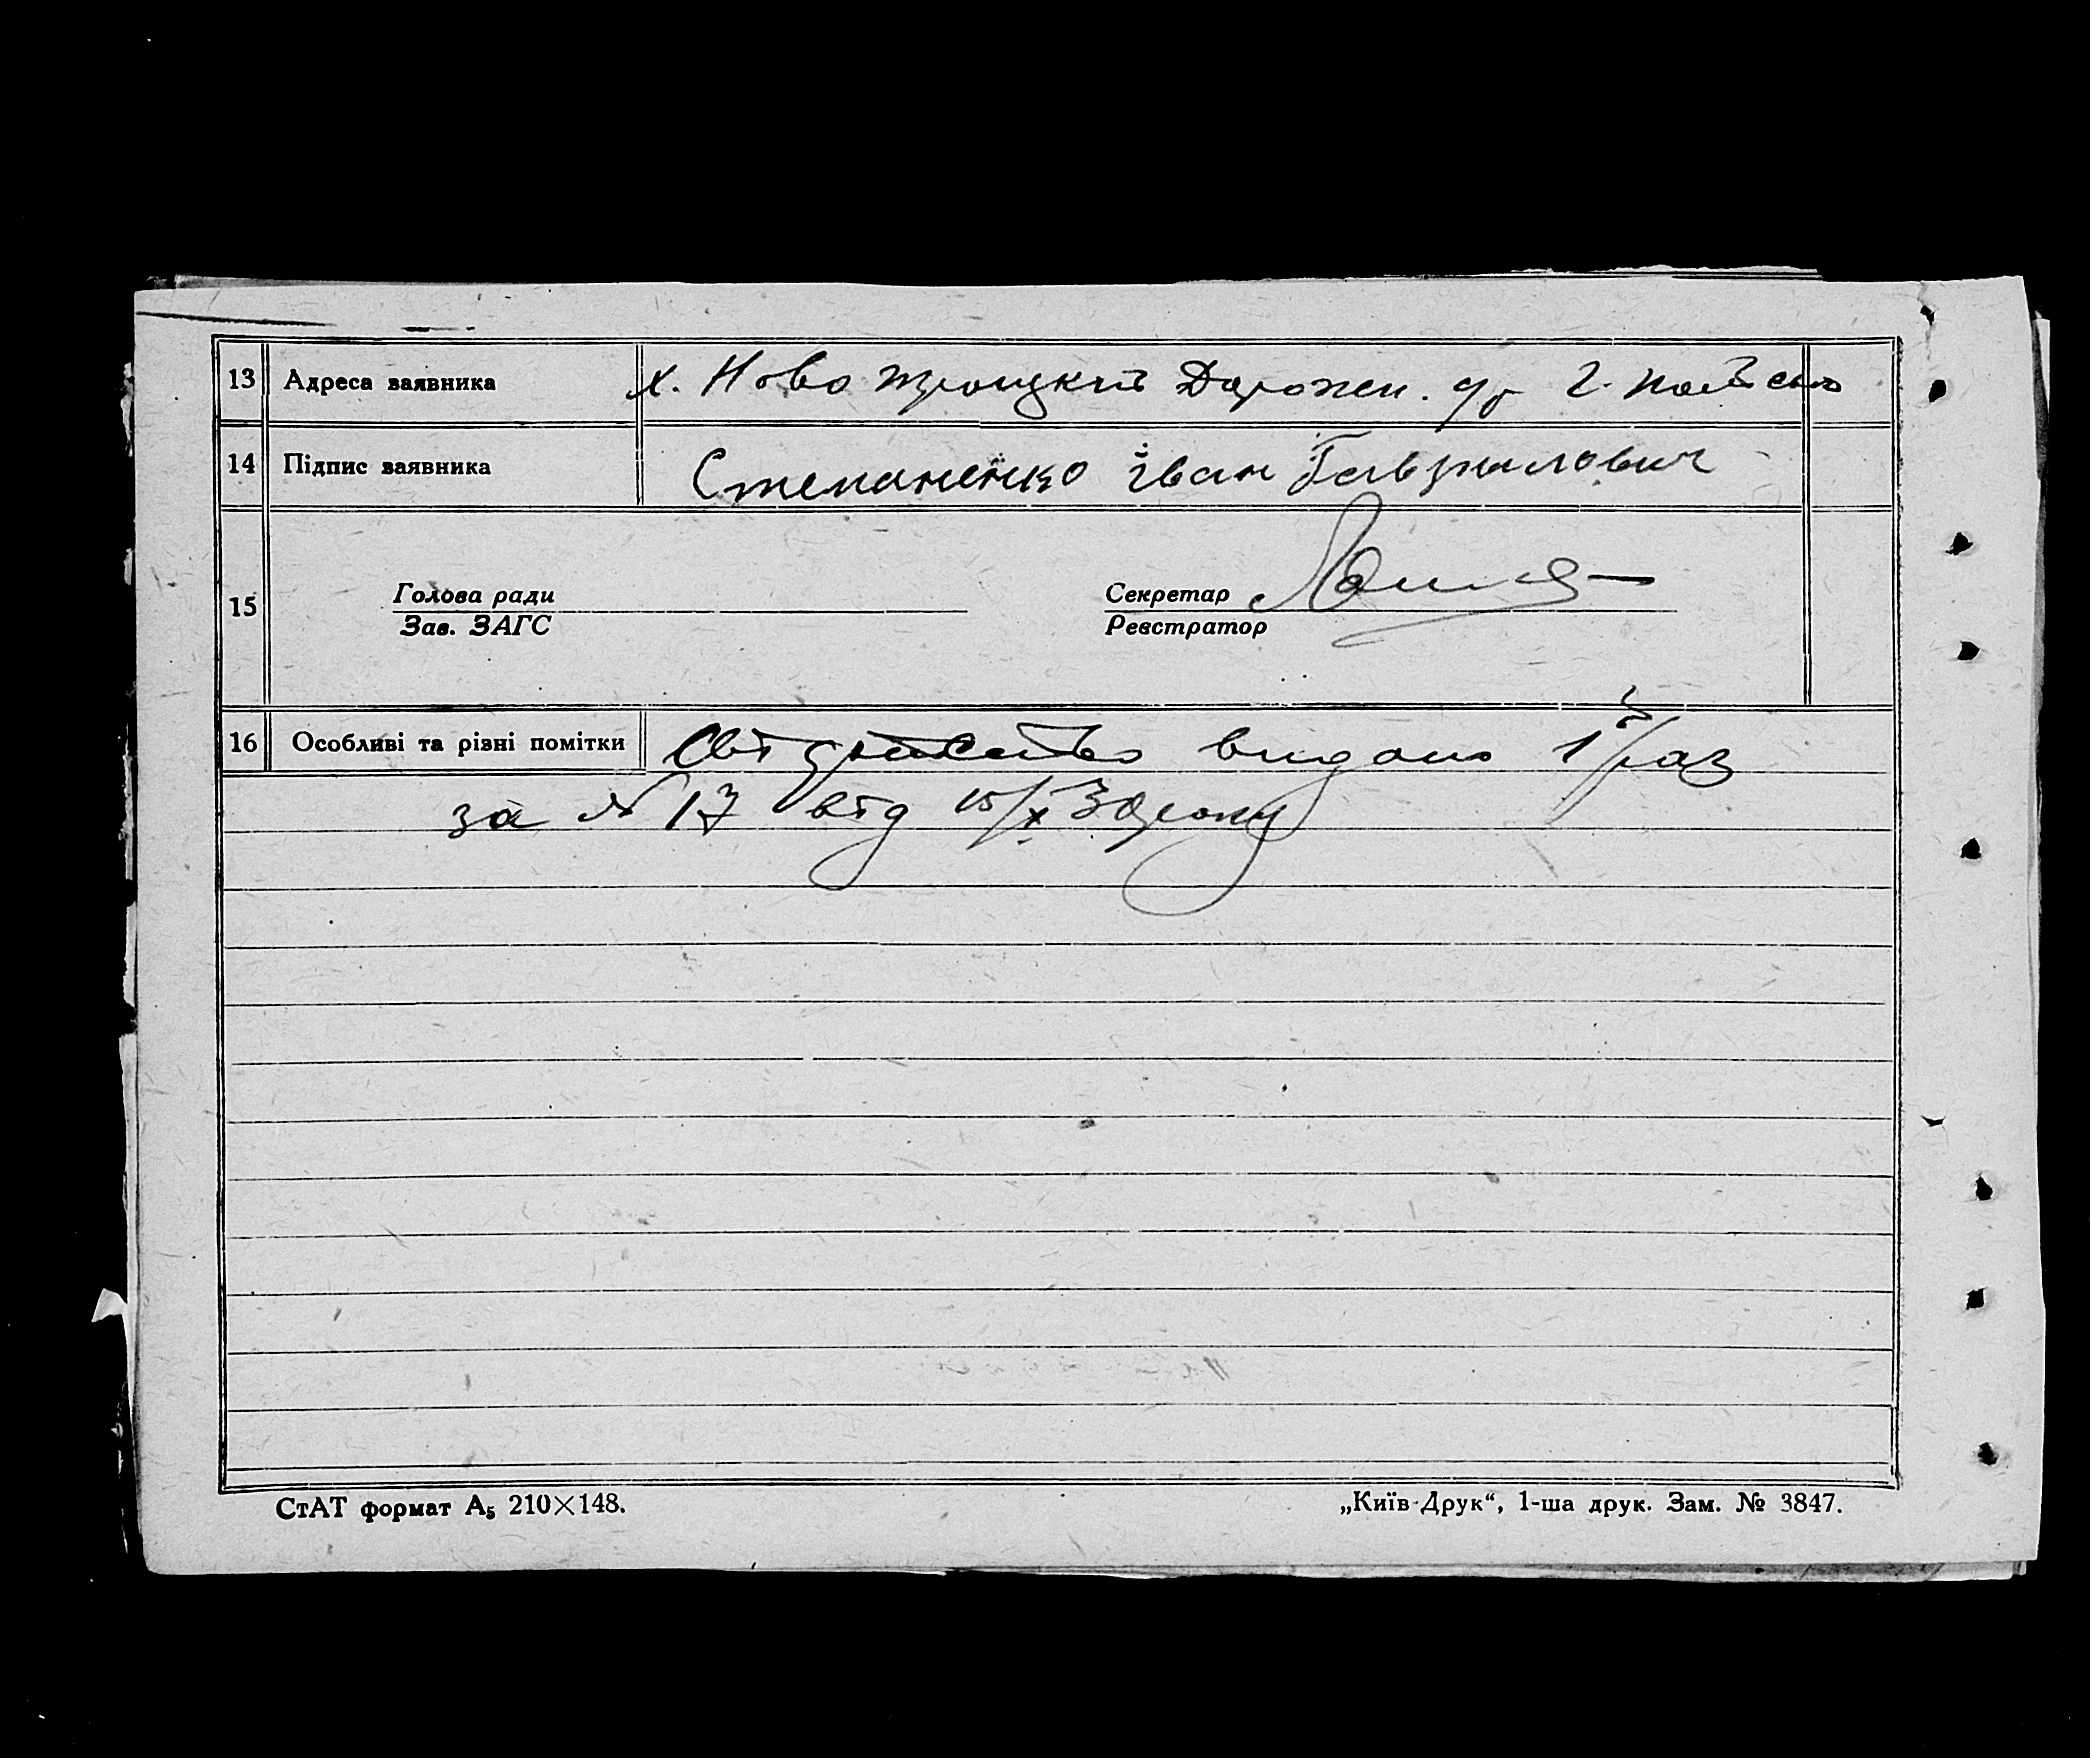 13 Адреса заявника х. Ново Троицкий Дорожен.
14 Підпис заявника Степаненко Іван Гаврилович
15 Голова ради Секретар
Зав. ЗАГС Реєстратор
16 Особливі та різні помітки Свідоцтво видано 1 раз
за № 17 від 15/X 30 року
СтАТ формат А₅ 210×148. „Київ-Друк“, 1-ша друк. Зам. № 3847.